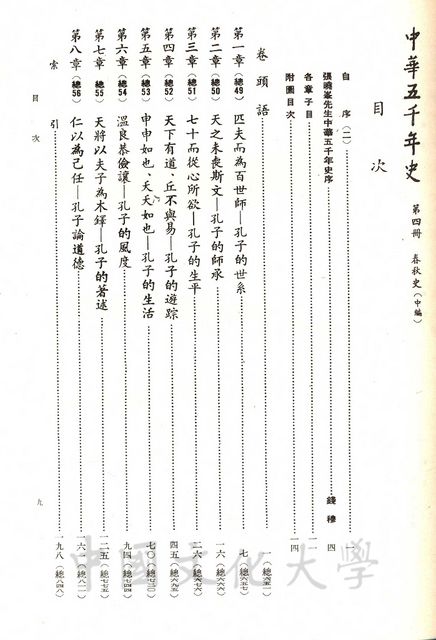 中華五千年史 第四冊 春秋史(中編)
目次
自序(二)……一
張曉峯先生中華五千年史序……錢穆 四
各章子目……一一
附圖目次……一四
卷頭語……一(總六五一)
第一章(總49) 匹夫而為百世師—孔子的世系……七(總六五七)
第二章(總50) 天之未喪斯文—孔子的師承……一六(總六六六)
第三章(總51) 七十而從心所欲—孔子的生平……二六(總六七六)
第四章(總52) 天下有道、丘不與易—孔子的遊踪……四五(總六九五)
第五章(總53) 申申如也、夭夭如也—孔子的生活……七〇(總七二〇)
第六章(總54) 溫良恭儉讓—孔子的風度……九四(總七四四)
第七章(總55) 天將以夫子為木鐸—孔子的著述……一二五(總七七五)
第八章(總56) 仁以為己任—孔子論道德……一六一(總八一一)
索引……一九八(總八四八)
目次
九
中國文化大學